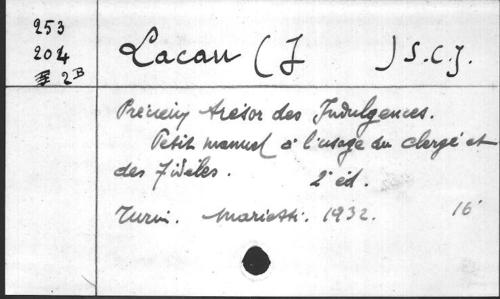 253
204
2B
Lacau (J ) S.C.J.
Précieux trésor des Indulgences.
Petit manuel à l'usage du clergé et
des Fidèles. 2e éd.
Turin. Marietti. 1932. 16°